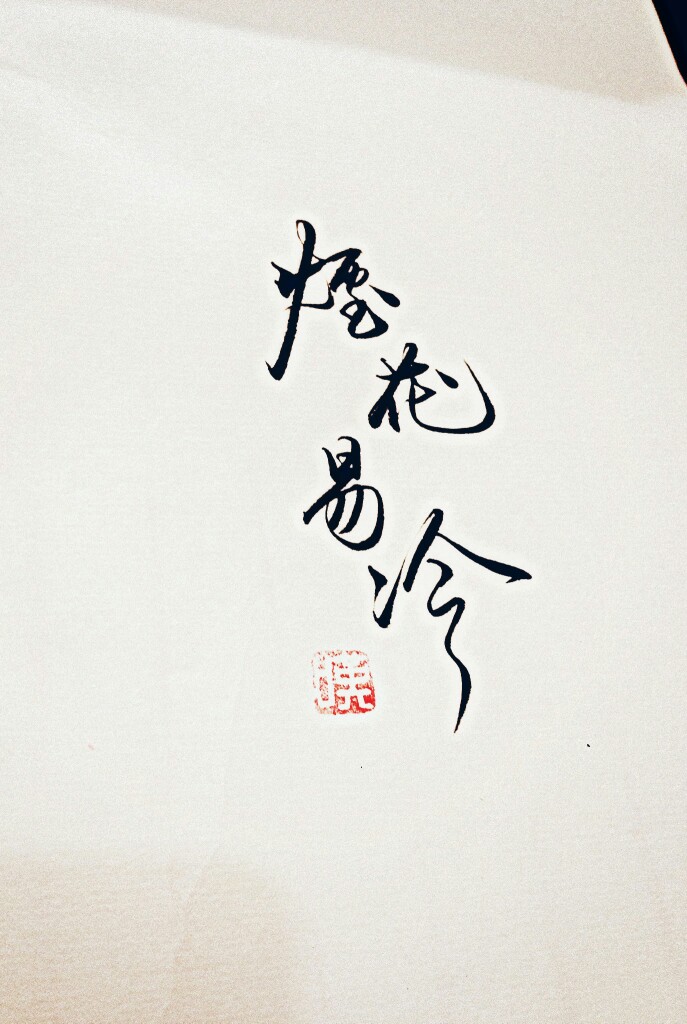 煙花易冷